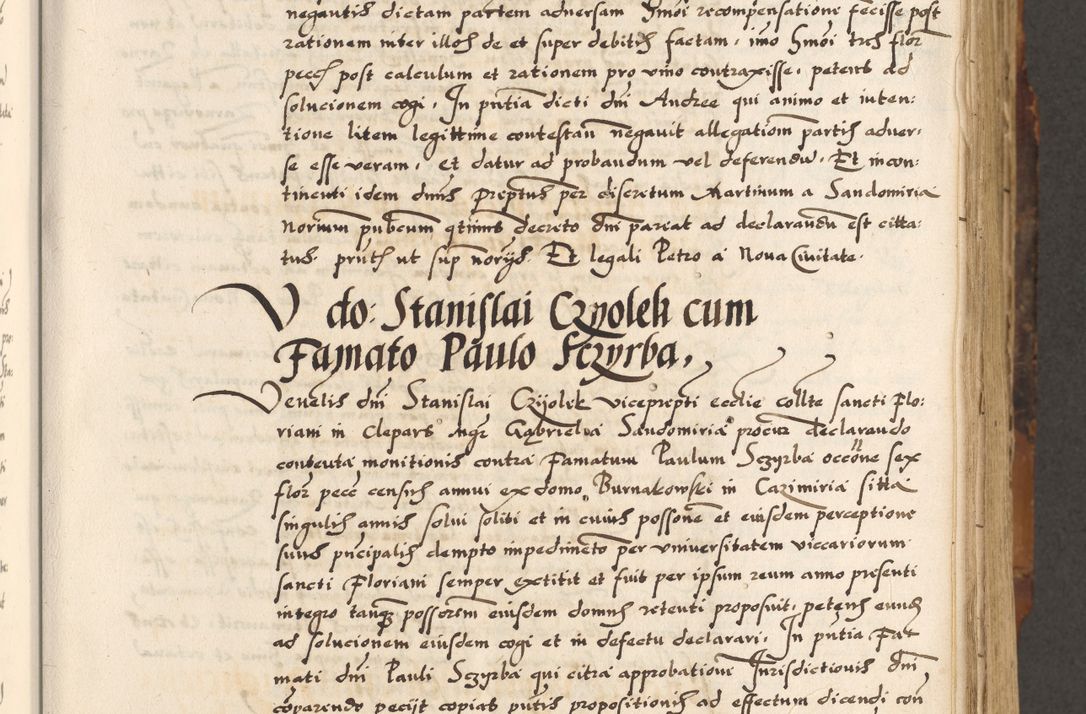 negavitis dictam partem adversam Hmoi recompensatione fecisse post
rationem inter illos de et super debitis factam, imo Hmoi tres flor
pecc post calculum et rationem pro vino contraxisse, petens ad
solucionem cogi, In pntia dicti dni Andree qui animo et inten:
tione litem legittime contestan negavit allegationem partis adver,
se esse veram, et datur ad probandum vel deferendu, Et incon:
tinenti idem dnus preptus per discretum Martinum a Sandomiria
Norium pubcum qtinus decreto dni pareat ad declarandu est citta:
tus. pntib ut sup norijs. Et legali Petro a Nova Civitate.
V do: Stanislai Czyolek cum
Famato Paulo Sczyrba,
Venelis dni Stanislai Czijolek viceprepti ecclie collte sancti Flo:
riani in Clepars mgr Gabriel a Sandomiria procur declarando
contenta monitionis contra Famatum Paulum Sczyrba occone sex
flor pecc census annui ex domo Burnakowski in Cazimiria sitta
singulis annis solvi soliti et in cuius possone et eiusdem perceptione
suus pncipalis dempto impedimeto per universitatem viccariorum
sancti Floriani semper extitit et fuit per ipsum reum anno presenti
integro tanq possorem eiusdem domus retenti proposuit, petens eund
ad solucionem eiusdem cogi et in defectu declarari, In pntia Fa
mati dni Pauli Sczyrba qui citra approbationi Jurisdictionis dni
coparendo pecijt copias pntis propositionis ad effectum dicendi con